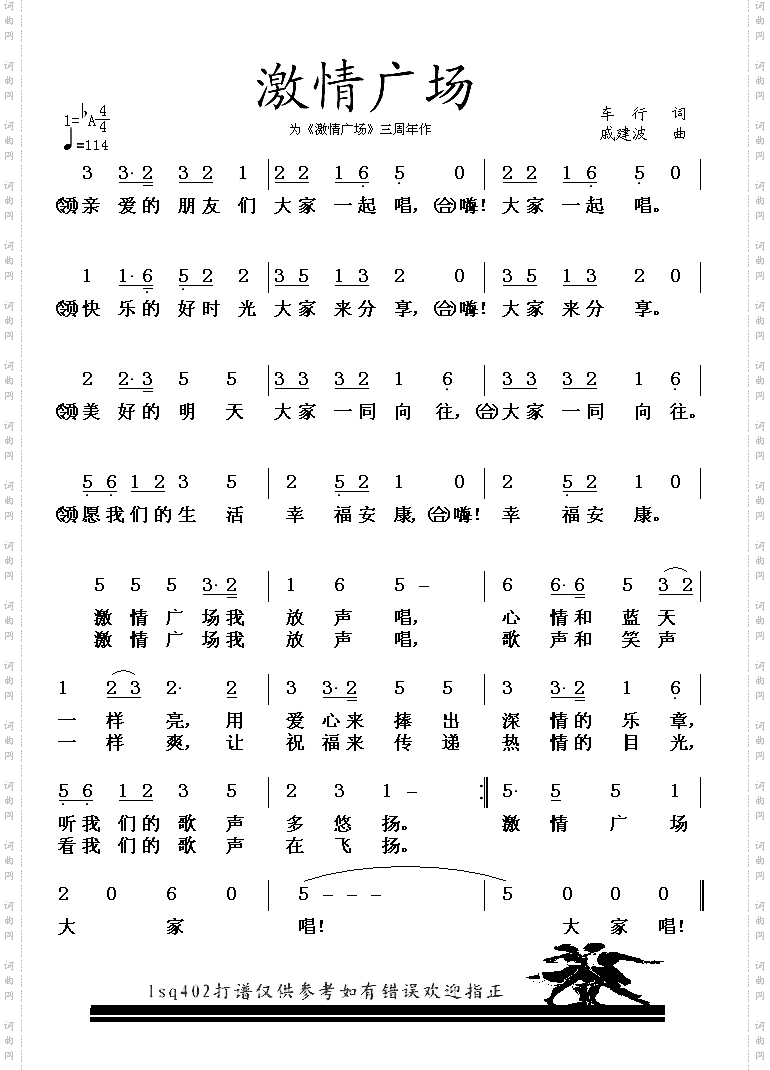 激情广场
1=♭A 4/4
为《激情广场》三周年作
车 行 词
♩=114
戚建波 曲
3 3· 2 3 2 1 | 2 2 1 6 5 0 | 2 2 1 6 5 0 |
(领)亲 爱的 朋友 们 大家 一起 唱，(合)嗨！大家 一起 唱。
1 1· 6 5 2 2 | 3 5 1 3 2 0 | 3 5 1 3 2 0 |
(领)快 乐的 好时 光 大家 来分 享，(合)嗨！大家 来分 享。
2 2· 3 5 5 | 3 3 3 2 1 6 | 3 3 3 2 1 6 |
(领)美 好的 明 天 大家 一同 向 往，(合)大家 一同 向 往。
5 6 1 2 3 5 | 2 5 2 1 0 | 2 5 2 1 0 |
(领)愿我们的生 活 幸 福安 康，(合)嗨！幸 福安 康。
5 5 5 3· 2 | 1 6 5 – | 6 6· 6 5 3 2 |
激 情 广 场我 放 声 唱， 心 情和 蓝 天
激 情 广 场我 放 声 唱， 歌 声和 笑 声
1 2 3 2· 2 | 3 3· 2 5 5 | 3 3· 2 1 6 |
一 样 亮， 用 爱 心来 捧 出 深 情的 乐 章，
一 样 爽， 让 祝 福来 传 递 热 情的 目 光，
5 6 1 2 3 5 | 2 3 1 – :‖ 5· 5 5 1 |
听我 们的 歌 声 多 悠 扬。 激 情 广 场
看我 们的 歌 声 在 飞 扬。
2 0 6 0 | 5 – – – | 5 0 0 0 ‖
大 家 唱！ 大 家 唱！
lsq402打谱仅供参考如有错误欢迎指正
词曲网